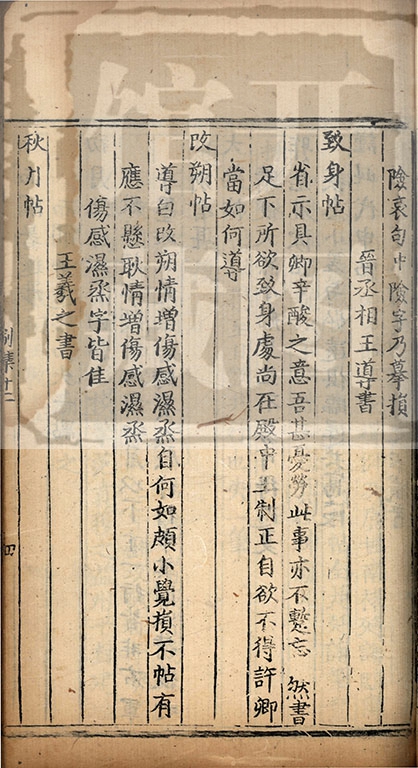 險哀句中險字乃摹損
晉丞相王導書
致身帖
省示具卿辛酸之意吾甚憂勞此事亦不蹔忘 然書
足下所欲致身處尚在殿中王制正自欲不得許卿
當如何導
改朔帖
導白改朔情增傷感濕蒸自何如頗小覺損不帖有
應不懸耿情增傷感濕蒸
傷感濕蒸字皆佳
秋月帖
王羲之書
集十二
四